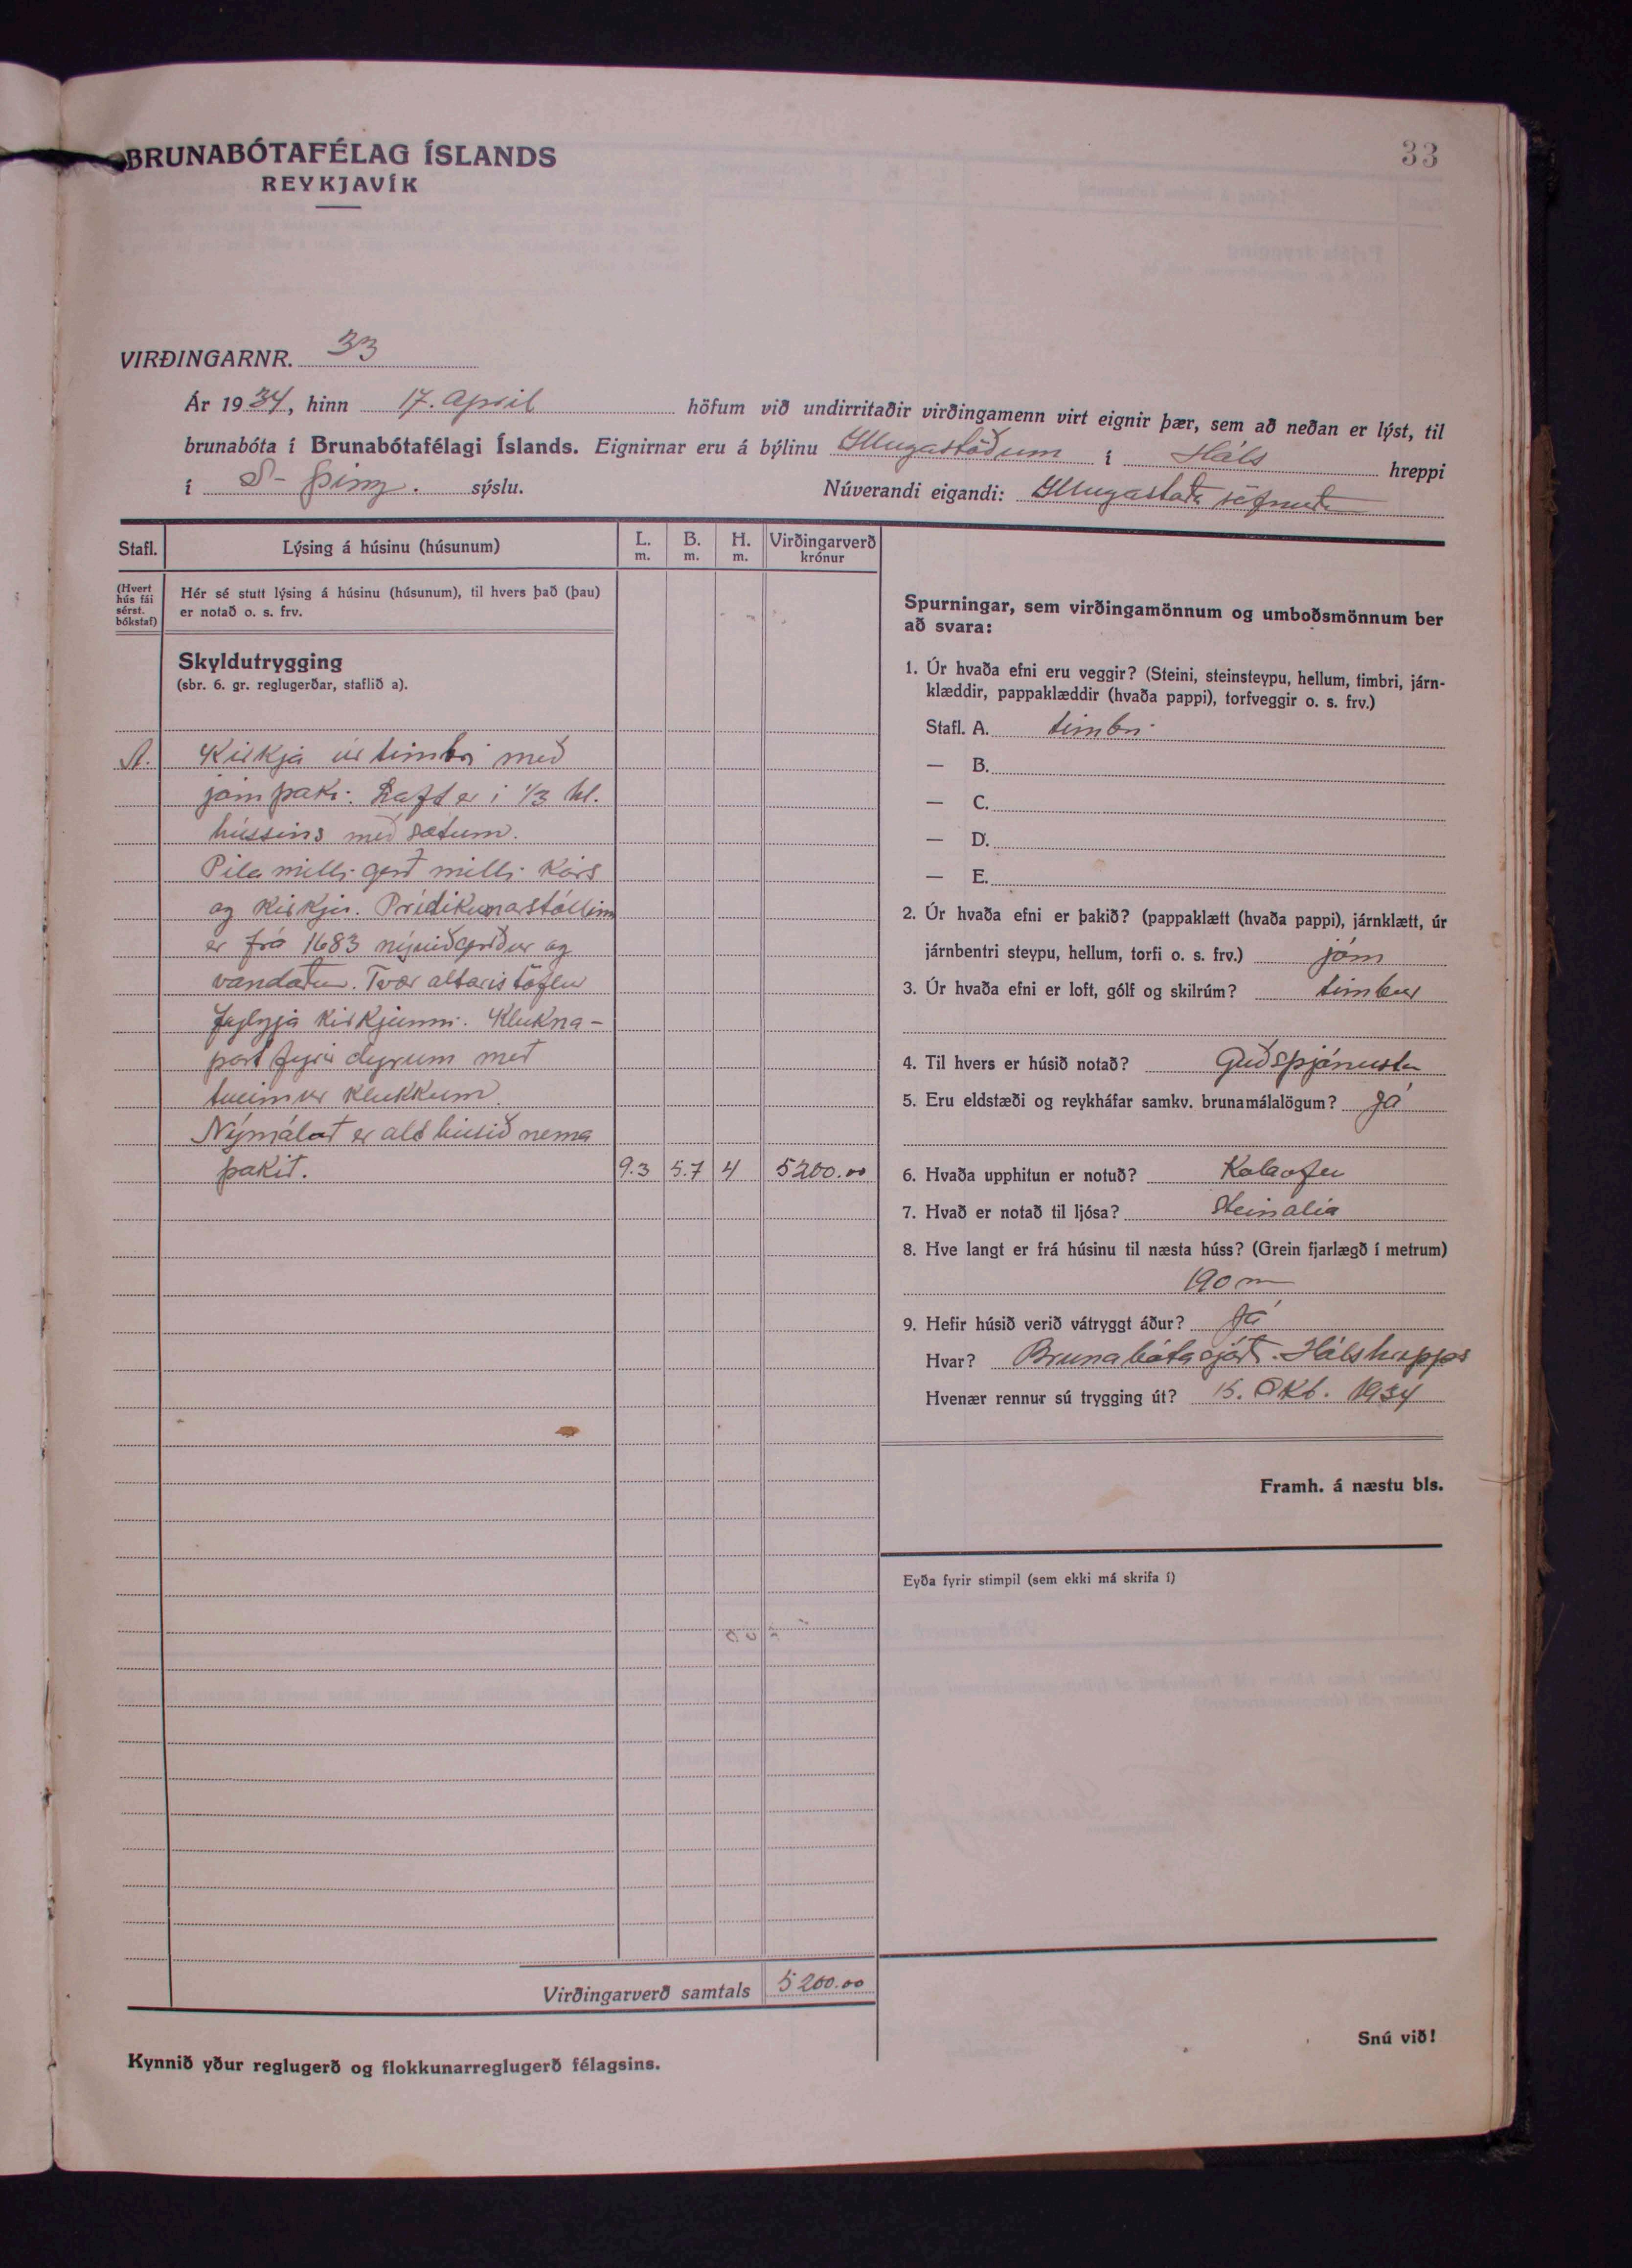 33
BRUNABÓTAFÉLAG ÍSLANDS
REYKJAVÍK
VIRÐINGARNR. 33
Ár 1934, hinn 17. apríl höfum við undirritaðir virðingamenn virt eignir þær, sem að neðan er lýst, til
brunabóta í Brunabótafélagi Íslands. Eignirnar eru á býlinu Illugastöðum í Háls hreppi
í S-Þing. sýslu. Núverandi eigandi: Illugastaða söfnuður
Stafl.
Lýsing á húsinu (húsunum)
L. m.
B. m.
H. m.
Virðingarverð krónur
(Hvert hús fái sérst. bókstaf)
Hér sé stutt lýsing á húsinu (húsunum), til hvers það (þau)
er notað o. s. frv.
Skyldutrygging
(sbr. 6. gr. reglugerðar, staflið a).
A. Kirkja úr timbri með
járnþaki. Loft er i 1/3 hl.
hússins með sætum.
Pila milli gerð milli Kórs
og Kirkju. Prédikunarstóllinn
er frá 1683 og
vandaður. Tvær altaristöflur
fylgja Kirkjunni. Klukna-
port fyrir dyrum með
tveimur Klukkum.
Nýmálað er alt húsið nema
þakið. 9.3 5.7 4 5200.00
Virðingarverð samtals 5200.00
Kynnið yður reglugerð og flokkunarreglugerð félagsins.
Spurningar, sem virðingamönnum og umboðsmönnum ber
að svara:
1. Úr hvaða efni eru veggir? (Steini, steinsteypu, hellum, timbri, járn-
klæddir, pappaklæddir (hvaða pappi), torfveggir o. s. frv.)
Stafl. A. timbri
— B.
— C.
— D.
— E.
2. Úr hvaða efni er þakið? (pappaklætt (hvaða pappi), járnklætt, úr
járnbentri steypu, hellum, torfi o. s. frv.) járn
3. Úr hvaða efni er loft, gólf og skilrúm? timbur
4. Til hvers er húsið notað? Guðsþjónustu
5. Eru eldstæði og reykháfar samkv. brunamálalögum? Já
6. Hvaða upphitun er notuð? Kolaofn
7. Hvað er notað til ljósa? Steinolía
8. Hve langt er frá húsinu til næsta húss? (Grein fjarlægð í metrum)
190 m
9. Hefir húsið verið vátryggt áður? Já
Hvar? Brunabótasjóði Hálshrepps
Hvenær rennur sú trygging út? 15. Okt. 1934
Framh. á næstu bls.
Eyða fyrir stimpil (sem ekki má skrifa í)
Snú við!